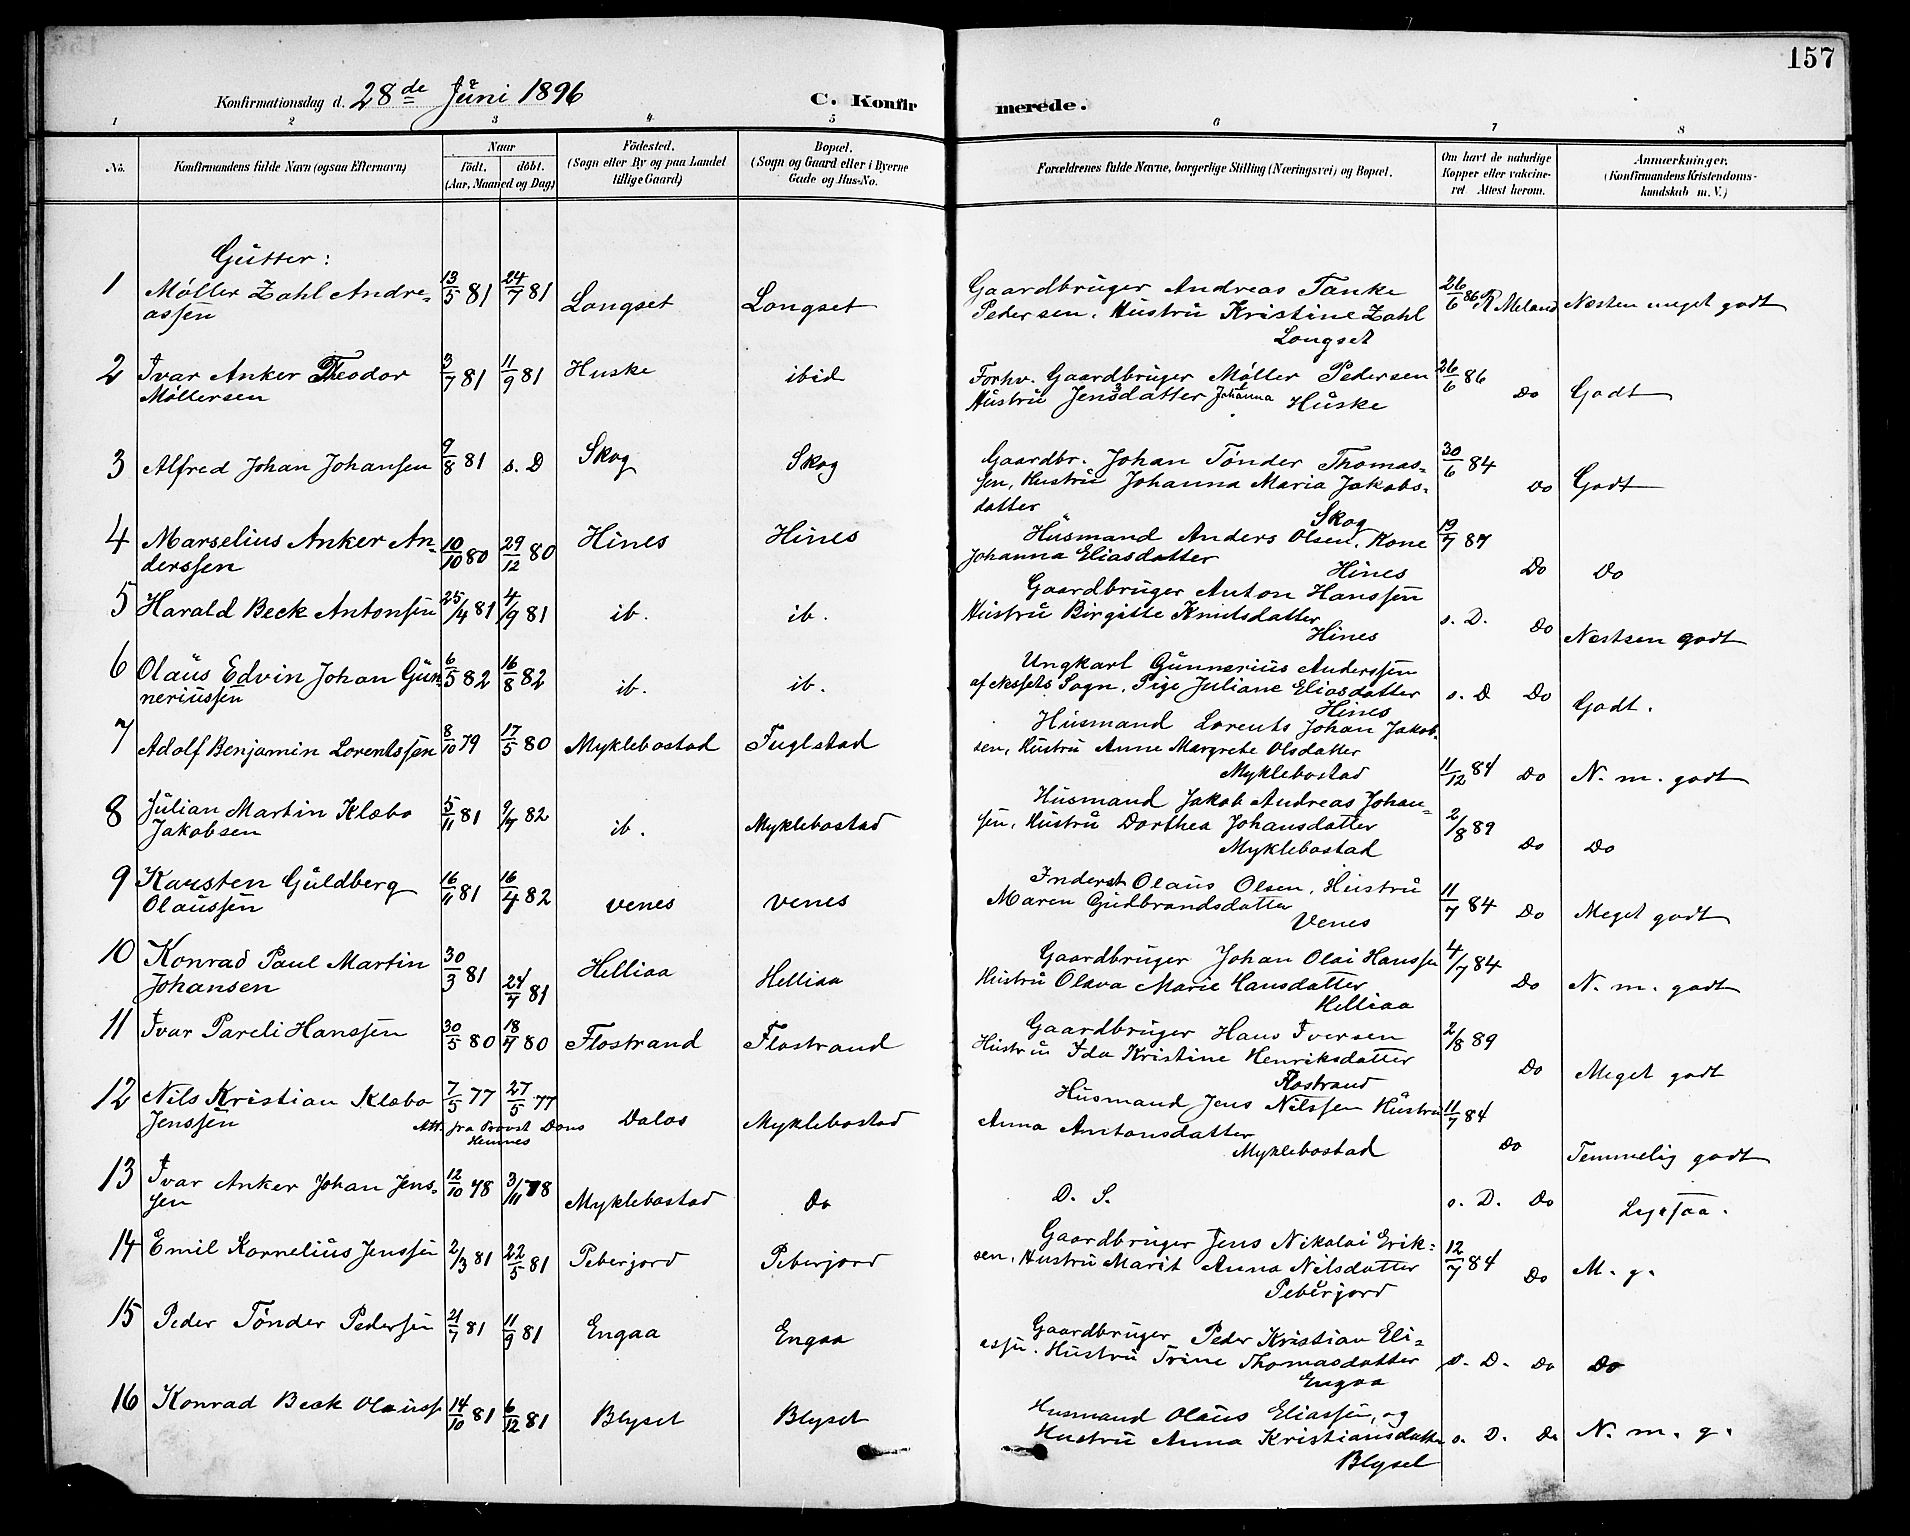 157
Konfirmationsdag d. 28de Juni 1896
C. Konfirmerede.
1 2 3 4 5 6 7 8
No.
Konfirmandens fulde Navn (ogsaa Efternavn)
Naar
födt. döbt.
(Aar, Maaned og Dag)
Födested.
(Sogn eller By og paa Landet
tillige Gaard)
Bopæl.
(Sogn og Gaard eller i Byerne
Gade og Hus-No.
Forældrenes fulde Navne, borgerlige Stilling (Næringsvei) og Bopæl.
Om havt de naturlige
Kopper eller vakcine-
ret Attest herom.
Anmærkninger.
(Konfirmandens Kristendoms-
kundskab m. V.)
Gutter:
1 Møller Zahl Andre-
assen
13/5 81 24/7 81 Longset Longset
Gaardbruger Andreas Tanke
Pedersen. Hustru Kristine Zahl
Longset
26/6 86 R Meland Næsten meget godt
2 Ivar Anker Theodor
Møllersen
3/7 81 11/9 81 Huske ibid
Forhv. Gaardbruger Møller Pedersen
Hustru Jensdatter Johanna Huske
26/6 86 Do Godt
3 Alfred Johan Johansen 9/8 81 s. D Skog Skog
Gaardbr. Johan Tønder Thomas-
sen, Hustru Johanna Maria Jakobs-
datter
Skog
30/6 84 Do Godt
4 Marselius Anker An-
derssen
10/10 80 29/12 80 Hines Hines
Husmand Anders Olsen. Kone
Johanna Eliasdatter
Hines
19/7 87 Do Do
5 Harald Beck Antonsen 25/4 81 4/9 81 ib. ib.
Gaardbruger Anton Hanssen
Hustru Birgitte Knutsdatter
Hines
s. D. Do Næstsen godt
6 Olaus Edvin Johan Gun-
neriussen
6/5 82 16/8 82 ib. ib.
Ungkarl Gunnerius Anderssen
af Nessets Sogn. Pige Juliane Eliasdatter
Hines
s. D Do Godt.
7 Adolf Benjamin Lorentssen 8/10 79 17/5 80 Myklebostad Fuglstad
Husmand Lorents Johan Jakob-
sen, Hustru Anne Margrete Olsdatter
Myklebostad
11/12 84 Do N. m. godt
8 Julian Martin Klæbo
Jakobsen
5/11 81 9/7 82 ib. Myklebostad
Husmand Jakob Andreas Johan-
sen, Hustru Dorthea Johansdatter
Myklebostad
2/8 89 Do Do
9 Karsten Guldberg
Olaussen
16/11 81 16/4 82 Venes Venes
Inderst Olaus Olsen, Hustru
Maren Gudbrandsdatter
Venes
11/7 84 Do Meget godt
10 Konrad Paul Martin
Johansen
30/3 81 24/7 81 Helliaa Helliaa
Gaardbruger Johan Olai Hanssen
Hustru Olava Marie Hansdatter
Helliaa
4/7 84 Do N. m. godt
11 Ivar Pareli Hanssen 30/5 80 18/7 80 Flostrand Flostrand
Gaardbruger Hans Iversen
Hustru Ida Kristine Henriksdatter
Flostrand
2/8 89 Do Meget godt
12 Nils Kristian Klæbo
Jenssen
7/5 77 27/5 77
Att. fra Provst Dons
Hemnes
Dalos Myklebostad
Husmand Jens Nilssen Hustru
Anna Antonsdatter
Myklebostad
11/7 84 Do Temmelig godt
13 Ivar Anker Johan Jens-
sen
12/10 78 3/11 78 Myklebostad Do
D. S. s. D. Do
14 Emil Kornelius Jenssen 2/3 81 22/5 81 Peberjord Peberjord
Gaardbruger Jens Nikolai Erik-
sen, Hustru Marit Anna Nilsdatter
Peberjord
12/7 84 Do M. g.
15 Peder Tønder Pedersen 21/7 81 11/9 81 Engaa Engaa
Gaardbruger Peder Kristian Eli-
assen. Hustru Trine Thomasdatter
Engaa
s. D. Do Do
16 Konrad Beck Olauss 14/10 81 6/12 81 Blyset Blyset
Husmand Olaus Eliassen, og
Hustru Anna Kristiansdatter
Blyset
s. D. Do N. m. g.